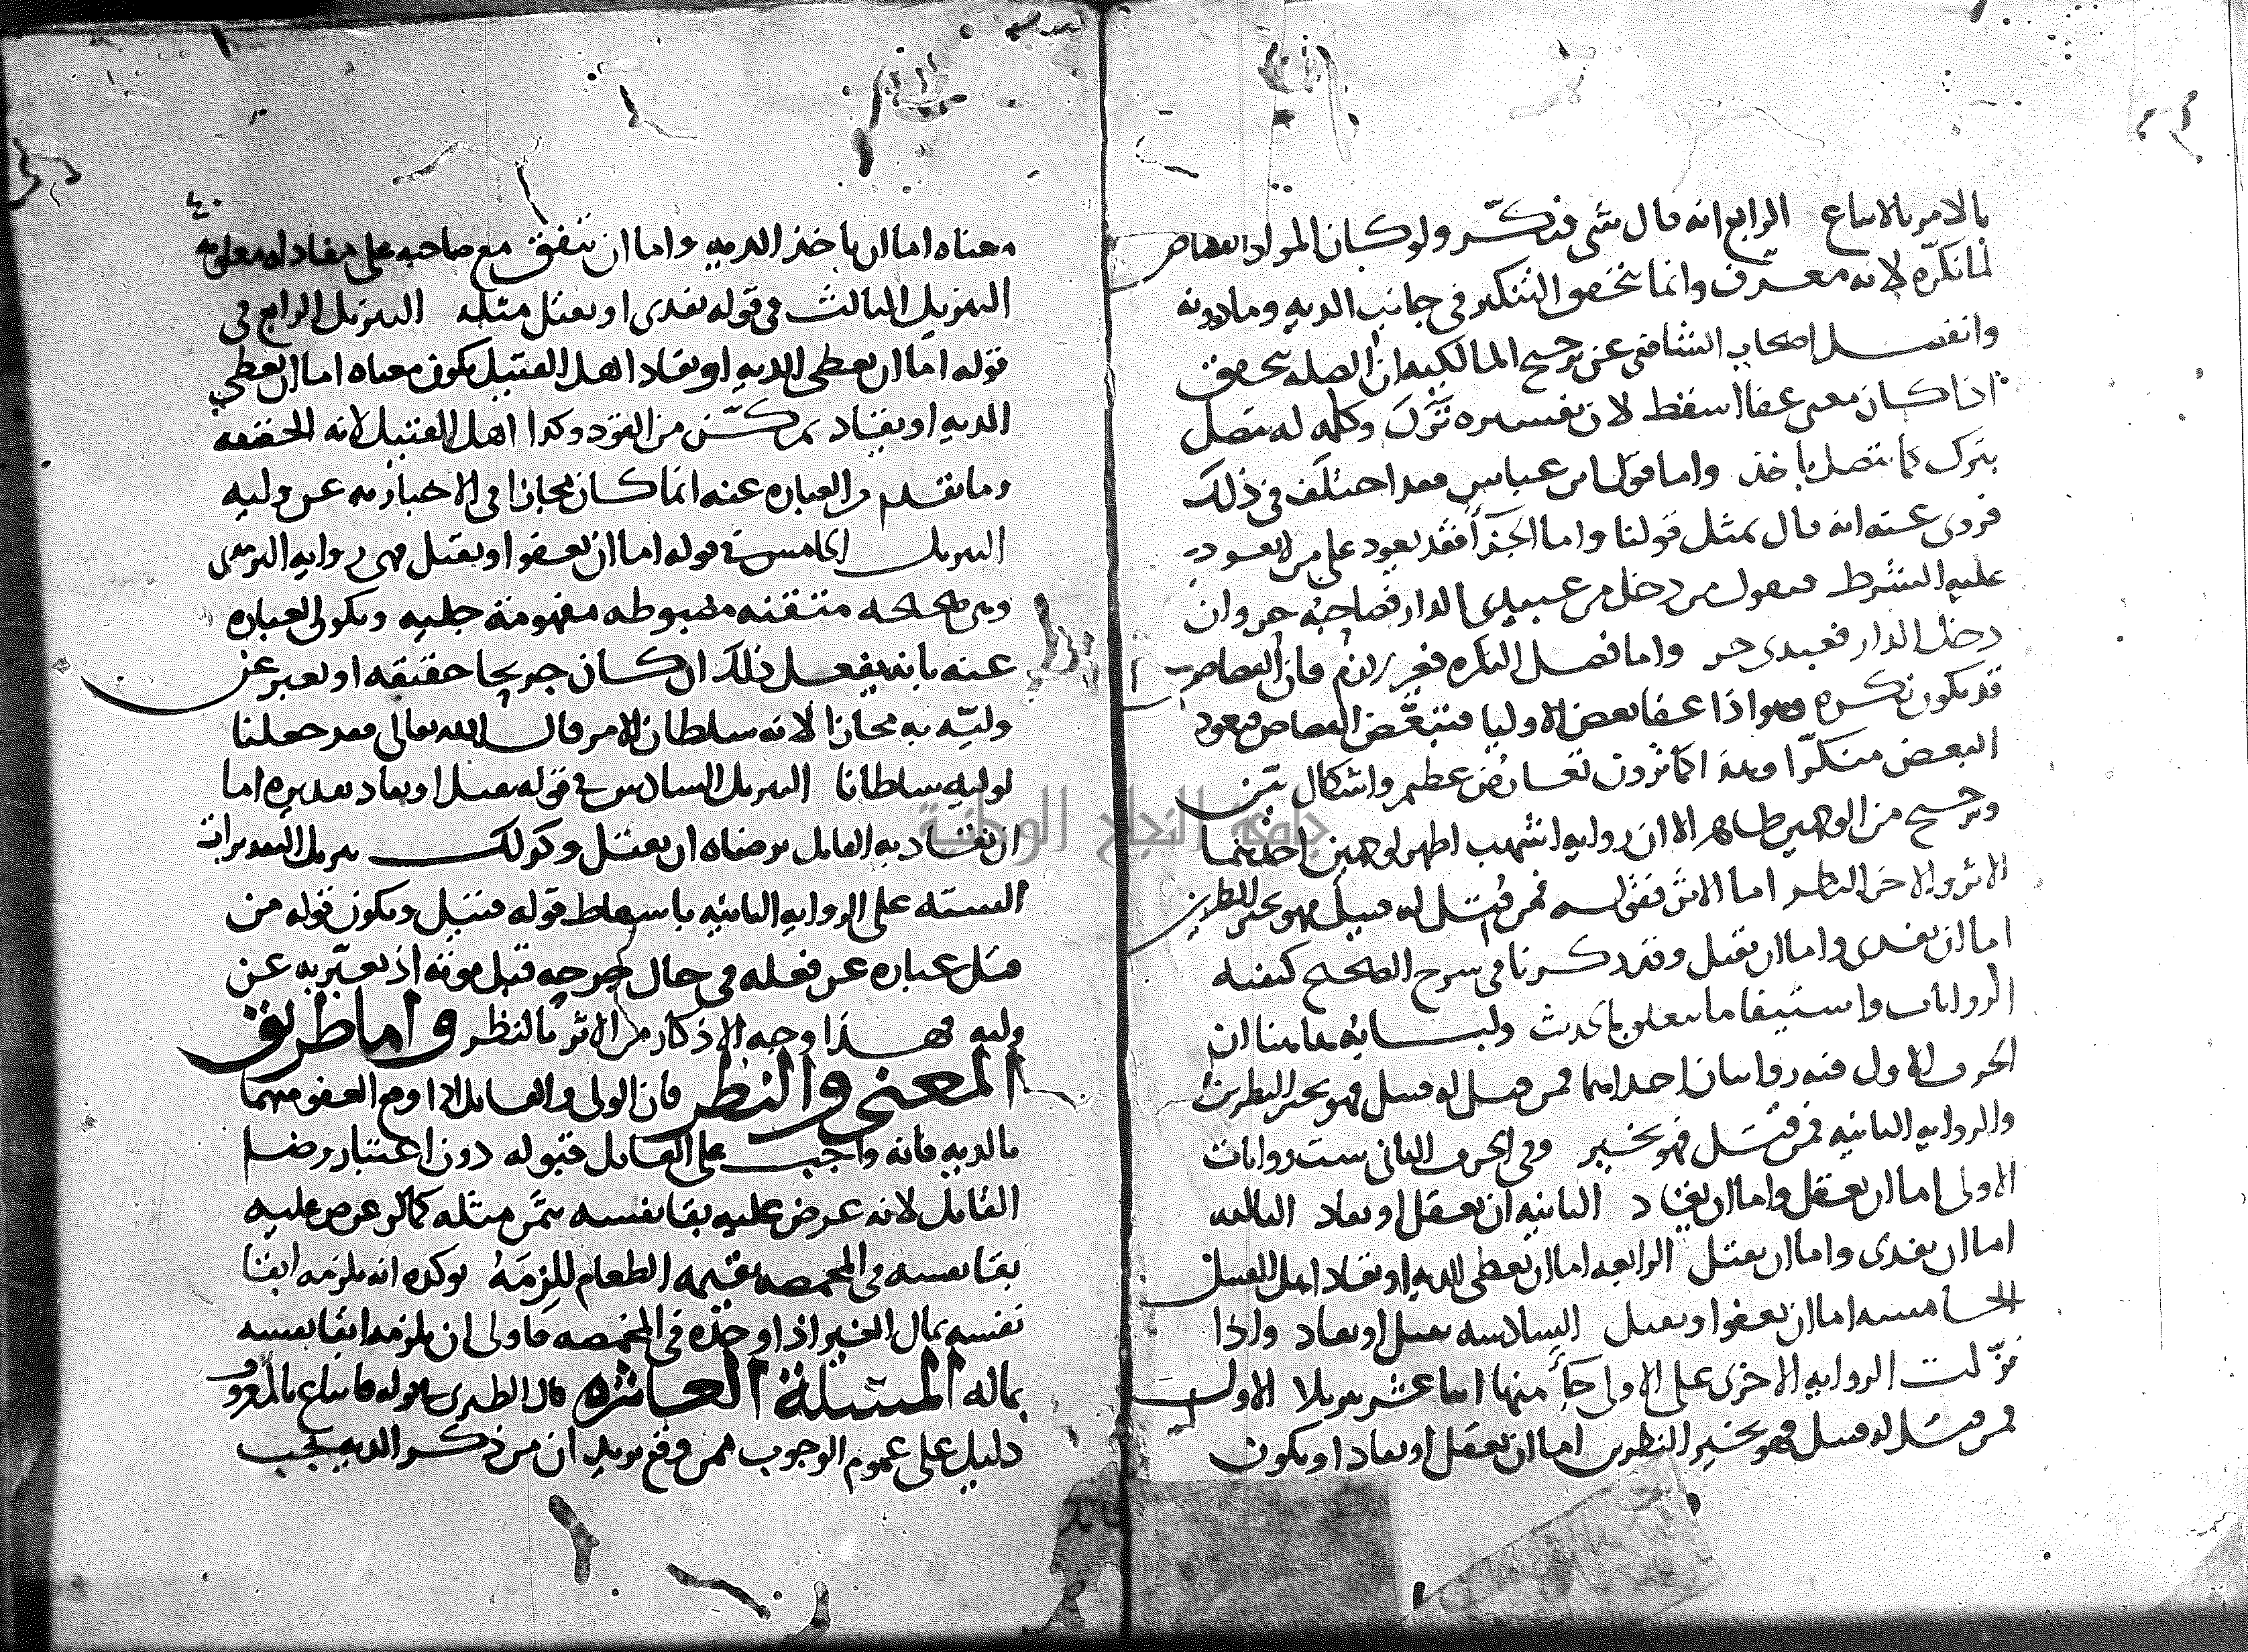 بالامر بالاتباع الرابع انه قال شي فنكّر ولو كان المراد القصاص
لما نكّره لانه معرّف وانما يتحقق التنكير في جانب الديه وما دونه
وانفصل اصحاب الشافعي عن ترجيح المالكيه ان الصله تتحقق
اذا كان معنى عفا اسقط لان تفسيره بترك وكلمه له تتصل
بترك كما تتصل باخذ واما قول ابن عباس فقد اختلف في ذلك
فروي عنه انه قال بمثل قولنا واما الجزآ فقد يعود على من لا يعود
عليه الشرط فتقول من دخل من عبيدي الدار فصاحبه حر وان
دخل الدار فعبدي حر واما فصل النكره فغير لازم فان القصاص
قد يكون نكره وهو اذا عفا بعض الاوليا فتتبعّض القصاص فيعود
البعض منكّرا وهذا كما ترون تعارُض عظيم واشكال بيّن
وترجيح من الوجهين ظاهر الا ان روايه اشهب اظهر لوجهين احدهما
الاثر والاخر النظر اما الاثر فقوله فمن قُتل له قتيل فهو بخير النظرين
اما ان يفدي واما ان يقتل وقد ذكرنا في شرح الصحيح كيفيه
الروايات واستيفا ما يتعلق بالحديث ولبابه هاهنا ان
الحرف الاول فيه روايتان احداهما فمن قتل له قتيل فهو بخير النظرين
والروايه الثانيه فمن قتل فهو بخير وفي الحرف الثاني ست روايات
الاولى اما ان يعقل واما ان يقاد الثانيه ان يعقل او يقاد الثالثه
اما ان يفدى واما ان يقتل الرابعه اما ان تعطى الديه او يقاد اهل القتيل
الخامسه اما ان يعفوا او يقتل السادسه يقتل او يقاد واذا
نزّلت الروايه الاخرى على الاولى جآ منها اثنا عشر تنزيلا الاول
فمن قتل له قتيل فهو بخير النظرين اما ان يعقل او يقاد او يكون
٤٠
معناه اما ان ياخذ الديه واما ان يتفق مع صاحبه على مفاداه معلومه
التنزيل الثالث في قوله يفدى او يقتل مثله التنزيل الرابع في
قوله اما ان يعطى الديه او يقاد اهل القتيل يكون معناه اما ان يعطي
الديه او يقاد يمكّن من القود وكذا اهل القتيل لانه الحقيقه
وما تقدم من العباره عنه انما كان مجازا في الاخبار به عن وليه
التنزيل الخامس في قوله اما ان يعفوا او يقتل فهي روايه الترمذي
وهي صحيحه متقنه مضبوطه مفهومة جليه ويكون العباره
عنه بانه يفعل ذلك ان كان جريحا حقيقه او يعبر عن
وليّه به مجازا لانه سلطان الامر قال الله تعالى فقد جعلنا
لوليه سلطانا التنزيل السادس في قوله يقتل او يقاد تقديره اما
ان يقاد به القاتل برضاه ان يقتل وكذلك تنزيل التقديرات
الستّه على الروايه الثانيه باسقاط قوله قتيل ويكون قوله من
قتل عباره عن فعله في حال جرحه قبل موته اذ يعبّر به عن
وليه فهذا وجه الاذكار من الاثر بالنظر واما طريق
المعنى والنظر فان الولي والقاتل اذا وقع العفو منهما
بالديه فانه واجب على القاتل قبوله دون اعتبار رضا
القاتل لانه عرض عليه بقا نفسه بثمن مثله كما لو عرض عليه
بقا نفسه في المخمصه بقيمه الطعام للزِمَهُ يوكده انه يلزمه ابقا
نفسه بمال الغير اذا وجده في المخمصه فاولى ان يلزمه ابقا نفسه
بماله المسئلة العاشره قال الطبري قوله فاتباع بالمعروف
دليل على عموم الوجوب فمن وقع يريد ان من ذكر الديه يجب
جامعة النجاح الوطنية